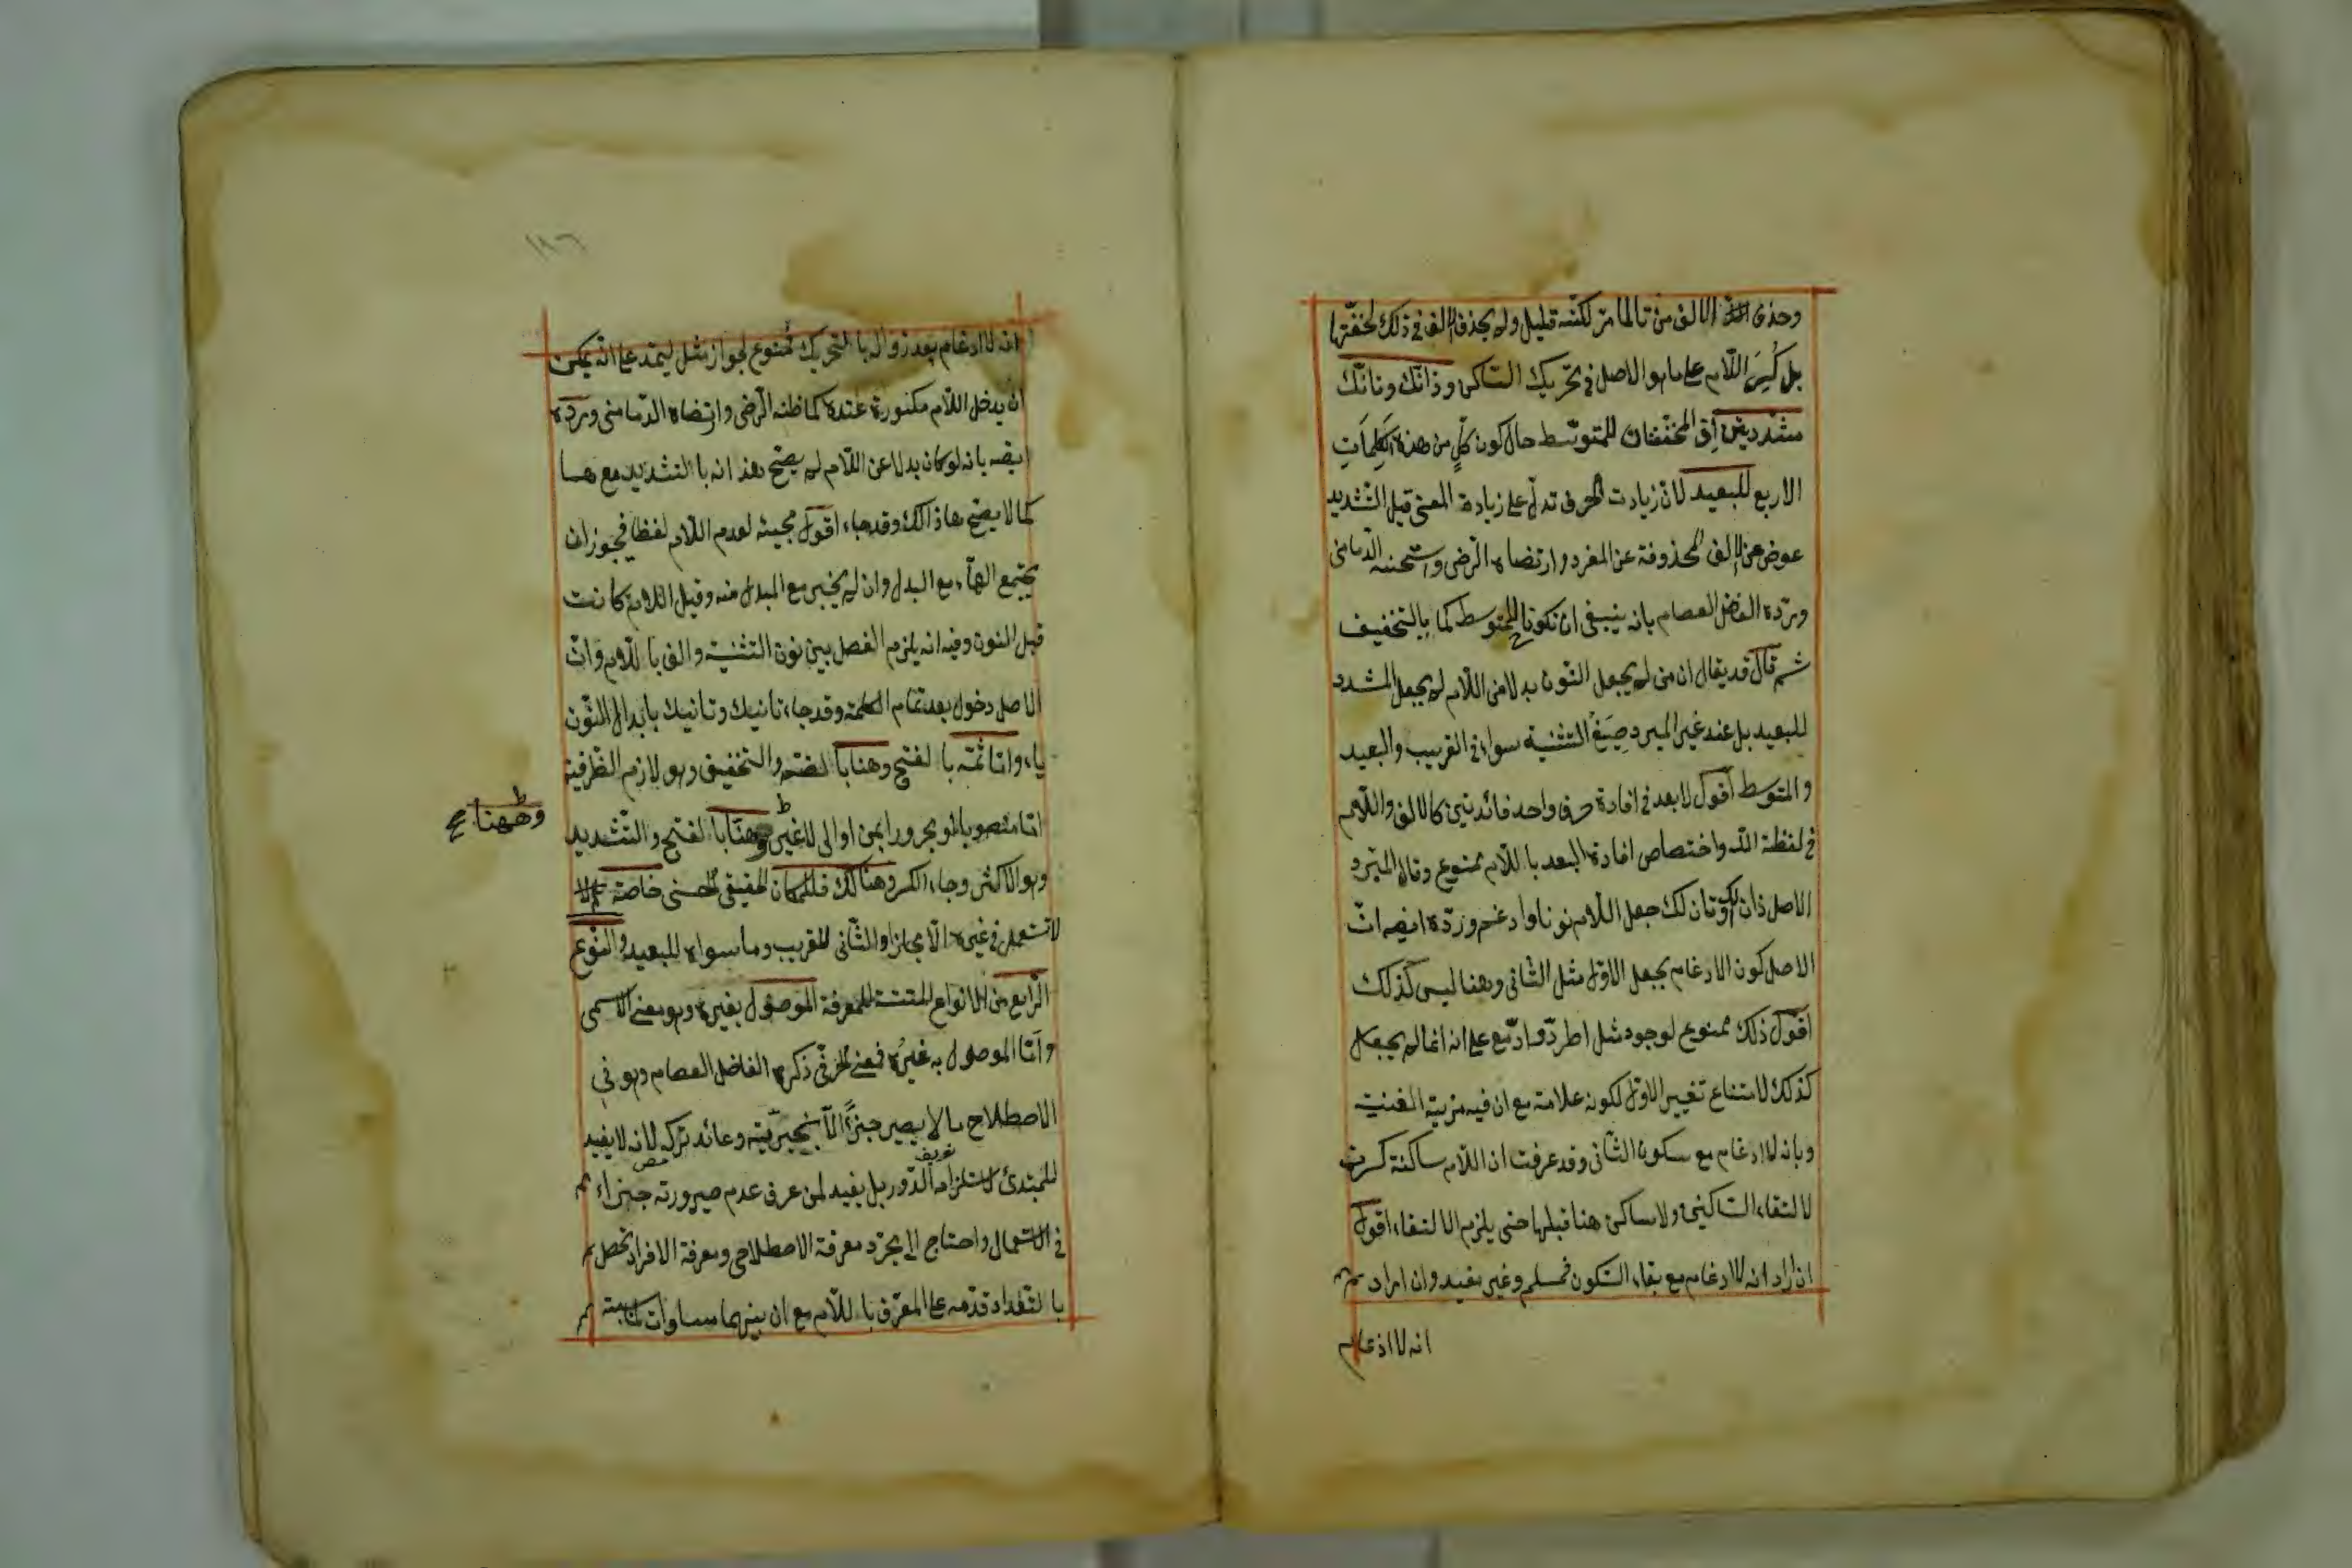 وحذف الالف من تا لما مرّ لكنّه قليل ولم يحذف الف فى ذلك لخفّتها
بل كُسِرَ اللّام على ما هو الاصل فى تحريك السّاكن وذانّك وتانّك
مشدّدتين اى المخفّفتان للمتوسّط حال كون كلٍّ من هذه الكلماتِ
الاربع للبعيد لانّ زيادت الحرف تدلّ على زيادة المعنى قيل التّشديد
عوض عن الالف المحذوفة عن المفرد وارتضاه الرّضى واستحسنه الدّمامنى
وردّه الفاضل العصام بانه ينبغى ان تكونا للمتوسط كما بالتخفيف
ثم قال قد يقال ان من لم يجعل النّون بدلا من اللّام لم يجعل المشدد
للبعيد بل عند غير المبرد صِيَغُ التثنية سواء فى القريب والبعيد
والمتوسط اقول لا بعد فى افادة حرف واحد فائدتين كالالف واللّام
فى لفظة اللّه واختصاص افادة البعد باللّام ممنوع وقال المبرّد
الاصل ذان لك وتان لك جعل اللّام نونا وادغم وردّه ايضه انّ
الاصل كون الادغام بجعل الاوّل مثل الثّانى وهنا ليس كذلك
اقول ذلك ممنوع لوجود مثل اطرّد وادّمع على انه انما لم يجعل
كذلك لامتناع تغيير الاوّل لكونه علامة مع ان فيه مزيّة الغنّة
وبانه لا ادغام مع سكون الثّانى وقد عرفت ان اللّام ساكنة كسرت
لالتقاء السّاكنين ولا ساكن هنا قبلها حتى يلزم الالتقاء اقول
ان اراد انه لا ادغام مع بقاء السّكون فمسلم وغير مفيد وان اراد
انه لا ادغام
١٨٦
انه لا ادغام بعد زواله بالتحريك فممنوع لجواز مثل ليمتد على انّه يمكن
ان يدخل اللّام مكسورة عنده كما ظنه الرّضى وارتضاه الدّمامنى وردّه
ايضه بانه لو كان بدلا عن اللّام لم يصحّ هذانّ بالتشديد مع ها
كما لا يصحّ هاذالك وقد جاء اقول مجيئه لعدم اللّام لفظا فيجوز ان
يجتمع الهاء مع البدل وان لم يجئ مع المبدل منه وقيل اللام كانت
قبل النون وفيه انه يلزم الفصل بين نون التثنية والف باللّام وانّ
الاصل دخول بعد تمام الكلمة وقد جاء ذانيك وتانيك بابدال النّون
ياء وامّا ثَمّه بالفتح وهنا بالضمّ والتخفيف وهو لازم الظرفية
امّا منصوبا او مجرورا بمن او الى لا غير وهنّا بالفتح والتّشديد
وههنا صح
وهو الاكثر وجاء الكسر وهنالك فللمكان الحقيقى الحسى خاصة
لا تستعمل فى غيره الّا مجازا والثّانى للقريب وما سواه للبعيد والنّوع
الرّابع من الانواع الستة للمعرفة الموصول بغيره وهو معنى الاسمى
وامّا الموصول به غيرُه فمعنى الحرفى ذكره الفاضل العصام وهو فى
الاصطلاح ما لا يصير جزءً الّا بخبريّته وعائد تركه لانه لا يفيد
للمبتدئ لاستلزامه الدّور بل يفيد لمن عرف عدم صيرورته جزاء
تعريف
فى الاستعمال واحتاج الى مجرّد معرفة الاصطلاحى ومعرفة الافراد تحصل
بالتّعداد قدّمه على المعرّف باللّام مع ان بينهما مساوات